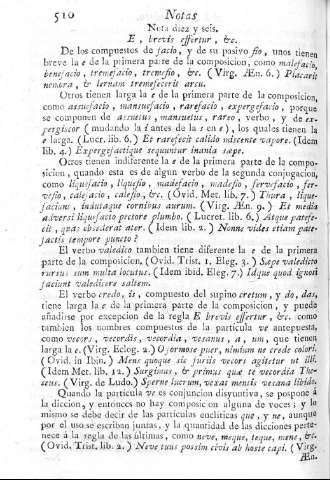 510 Notas
Nota diez y seis.
E, brevis effertur, &c.
De los compuestos de facio, y de su pasivo fio, unos tienen
breve la e de la primera parte de la composicion, como malefacio,
benefacio, tremefacio, tremefio, &c. (Virg. Æn. 6.) Placarit
nemora, & lernam tremefecerit arcu.
Otros tienen larga la e de la primera parte de la composicion,
como assuefacio, mansuefacio, rarefacio, expergefacio, porque
se componen de assuetus, mansuetus, rareo, verbo, y de ex-
pergiscor (mudando la i antes de la s en e), los quales tienen la
e larga. (Lucr. lib. 6.) Et rarefecit calido miscente vapore. (Idem
lib. 4.) Expergefactique sequuntur inania sæpe.
Otros tienen indiferente la e de la primera parte de la compo-
sicion, quando esta es de algun verbo de la segunda conjugacion,
como liquefacio, liquefio, madefacio, madefio, fervefacio, fer-
vefio, calefacio, calefio, &c. (Ovid. Met. lib. 7.) Thura, lique-
faciunt, inductaque cornibus aurum. (Virg. Æn. 9.) Et media
adversi liquefacto pectore plumbo. (Lucret. lib. 6.) Atque patefe-
cit, quas obsederat ater. (Idem lib. 2.) Nonne vides etiam pate-
factis tempore puncto?
El verbo valedico tambien tiene diferente la e de la primera
parte de la composicion, (Ovid. Trist. 1. Eleg. 3.) Sæpe valedicto
rursus sum multa locutus. (Idem ibid. Eleg. 7.) Idque quod ignoti
faciunt valedicere saltem.
El verbo credo, is, compuesto del supino cretum, y do, das,
tiene larga la e de la primera parte de la composicion, y puede
añadirse por excepcion de la regla E brevis effertur, &c. como
tambien los nombres compuestos de la particula ve antepuesta,
como vecors, vecordis, vecordia, vesanus, a, um, que tienen
larga la e. (Virg. Eclog. 2.) O formose puer, nimium ne crede colori.
(Ovid. in Ibin.) Mens quoque sic furiis vecors agitetur ut illi.
(Idem Met. lib. 12.) Surgimus, & primus quæ te vecordia The-
seus. (Virg. de Ludo.) Sperne lucrum, vexat mentis vesana libido.
Quando la particula ve es conjuncion disyuntiva, se pospone á
la diccion, y entonces no hay composicion alguna de voces; y lo
mismo se debe decir de las particulas encliticas que, y ne, aunque
por el uso se escriban juntas, y la quantidad de las dicciones perte-
nece á la regla de las últimas, como neve, meque, teque, mene, &c.
(Ovid. Trist. lib. 2.) Neve tuus possim civis ab hoste capi. (Virg.
Æn.